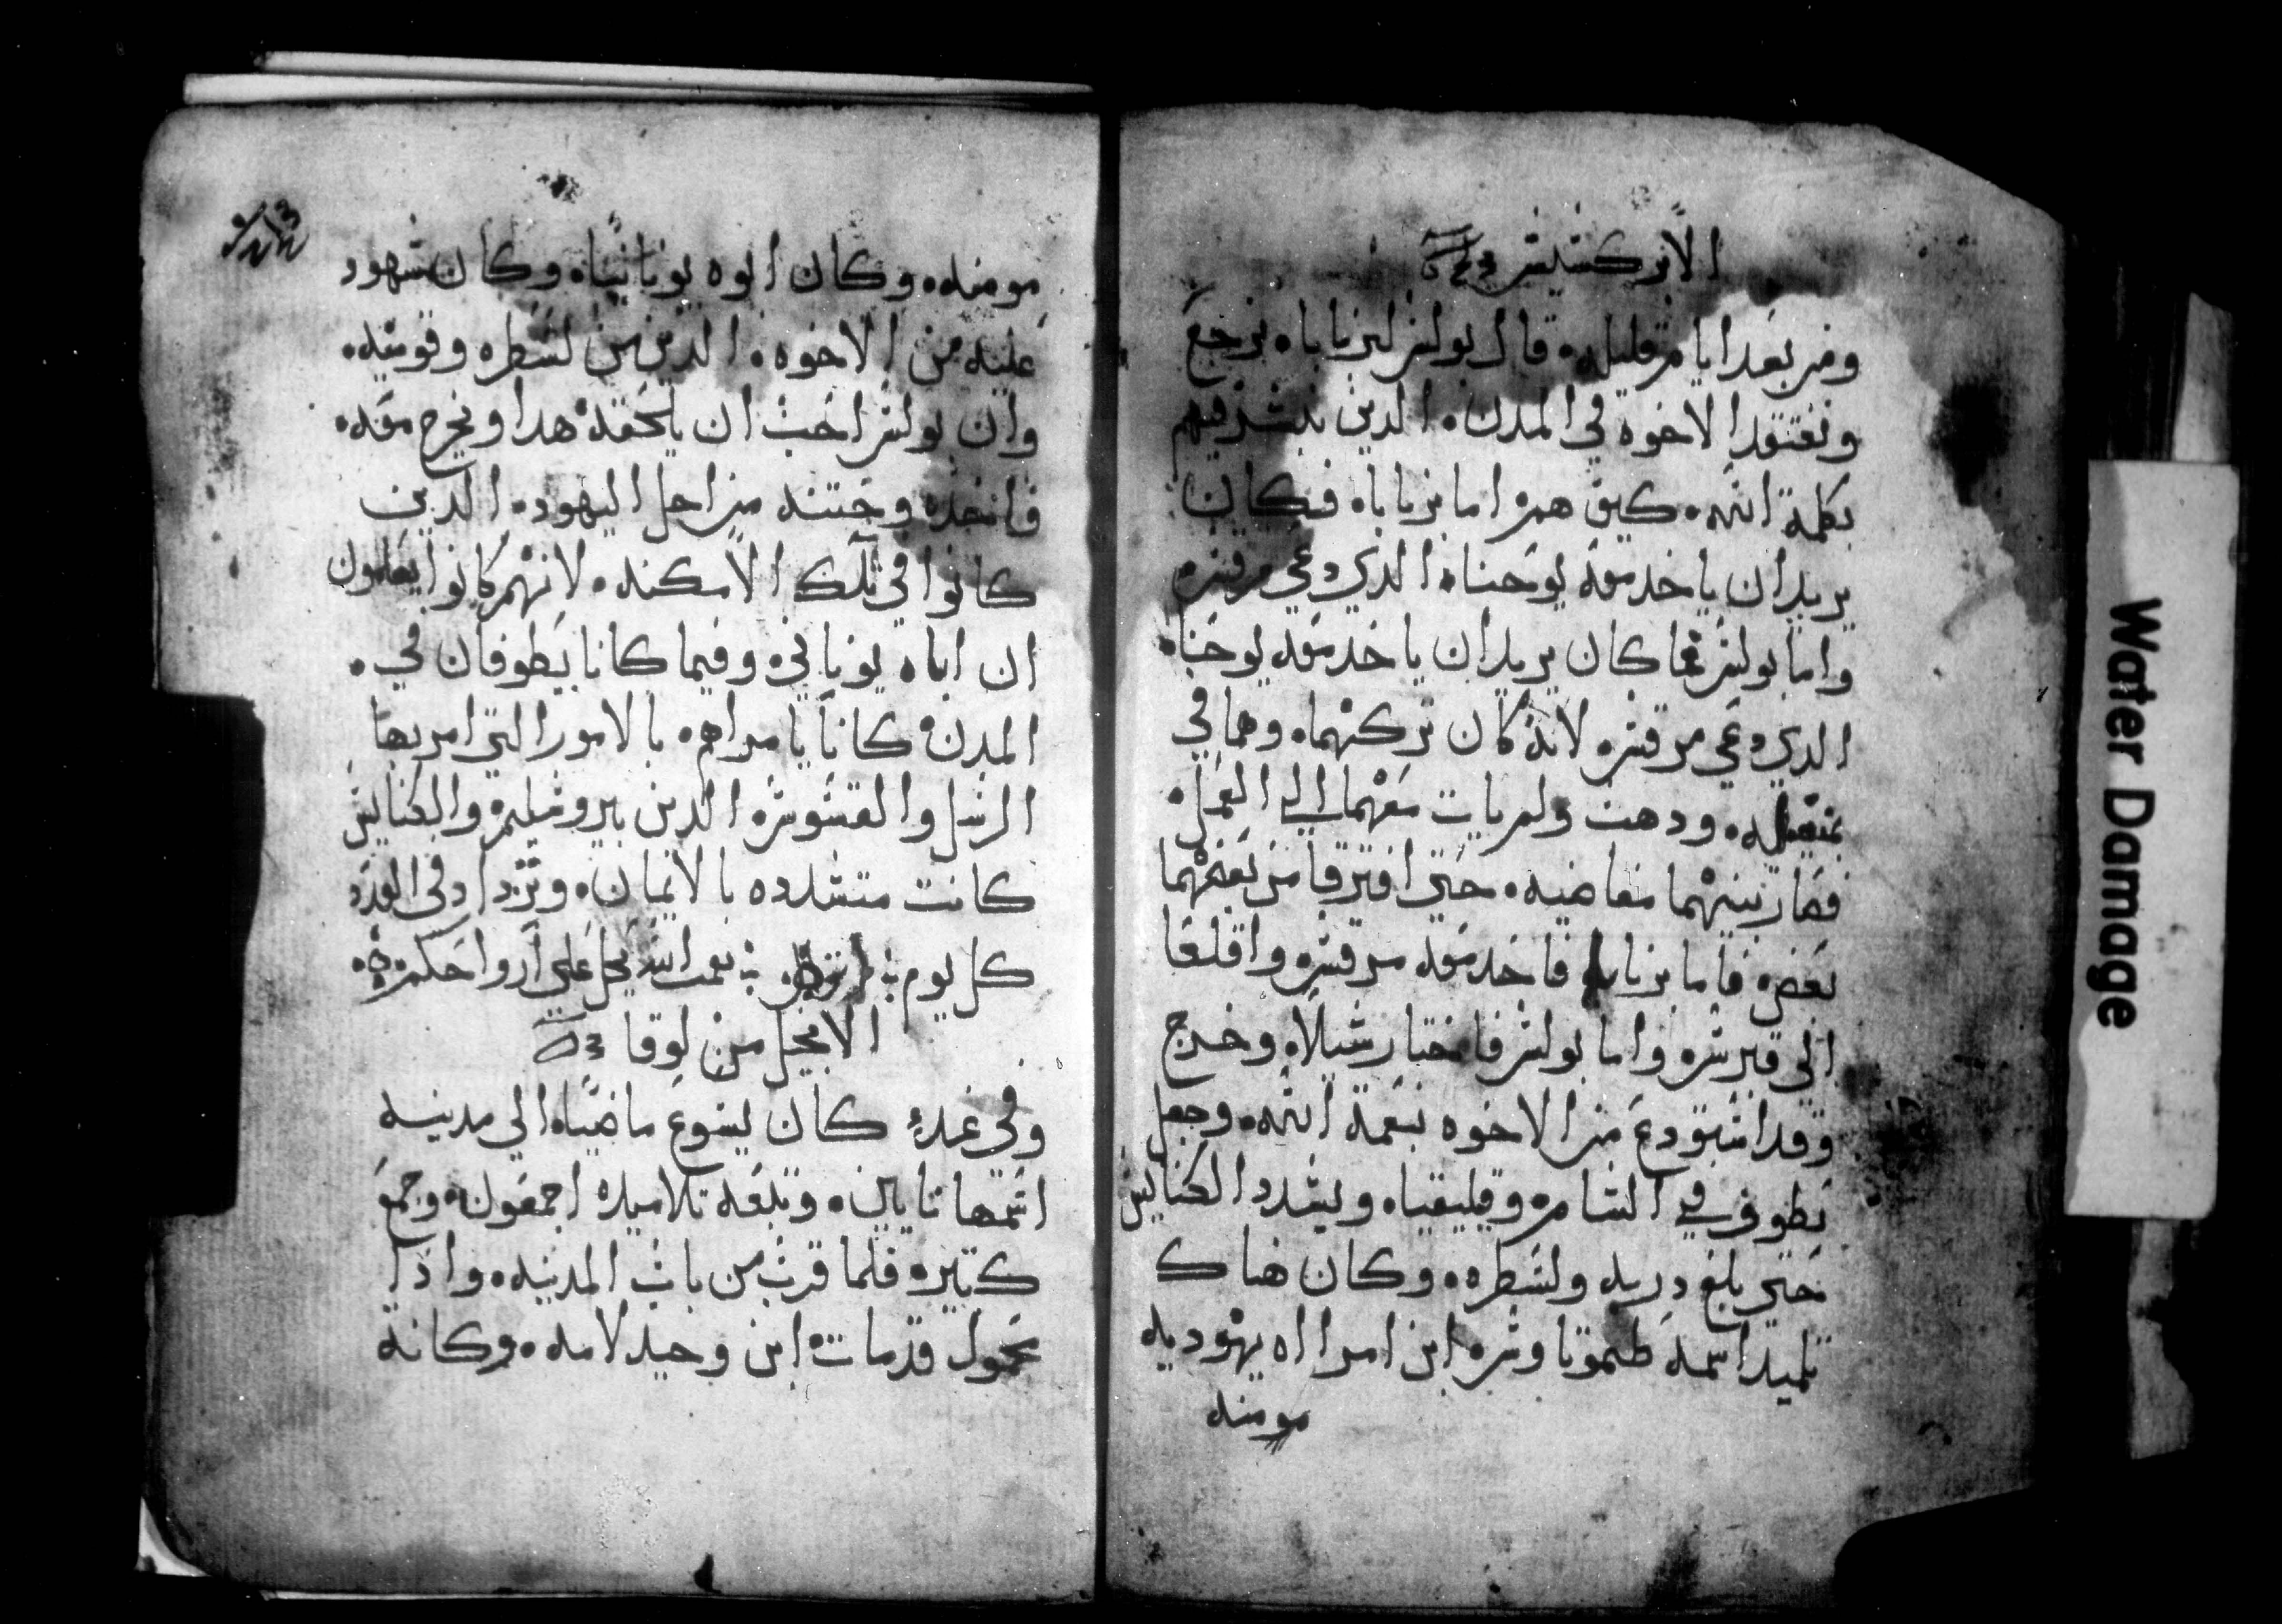 الابركسيس
ومن بعد ايام قليله. قال بولس لبرناباه نرجع
ونفتقد الاخوه في المدن. الدين بشر فيهم
بكلمة الله. كيف هم. اما برناباه فكان
يريد ان ياخد معه يوحناه الدي دعي مرقس.
واما بولس فما كان يريد ان ياخد معه يوحناه
الدي دعي مرقس. لانه كان تركهما. وهما في
ودهب ولم يات معهما الي العمل.
فصار بينهما مغاضبه. حتي افترقا من بعضهما
بعض. فاما برناباه فاخد معه مرقس. واقلعا
الي قبرس. واما بولس فاختار شيلاه وخرج
وقد استودع من الاخوه بنعمة الله. وجعل
يطوف في الشام. وقليقياه ويشدد الكنايس
حتي بلغ دربه ولسطره. وكان هناك
تلميد اسمه طيموتاوس. ابن امرااه يهوديه
مومنه
مومنه. وكان ابوه يونانياه وكان شهود
عليه من الاخوه. الدين من لسطره وقونيه.
وان بولس احب ان يلحقه هدا ويخرج معه.
فاتخده وختنه من اجل اليهود. الدين
كانوا في تلك الامكنه. لانهم كانوا يعلمون
ان اباه يوناني. وفيما كانا يطوفان في.
المدن. كانا يامراهم. بالامور التي امر بها
الرسل والقسوس. الدين بيروشليم. والكنايس
كانت متشدده بالايمان. وتزداد في العدد
كل يوم نعمت الله تحل علي ارواحكم
الانجيل من لوقا
وفي غد. كان يسوع ماضياه الي مدينه
اسمها نايين. وتبعه تلاميده اجمعون. وجمع
كتير. فلما قرب من باب المدينه. واذا
محمول قد مات. ابن وحيد لامه. وكانه